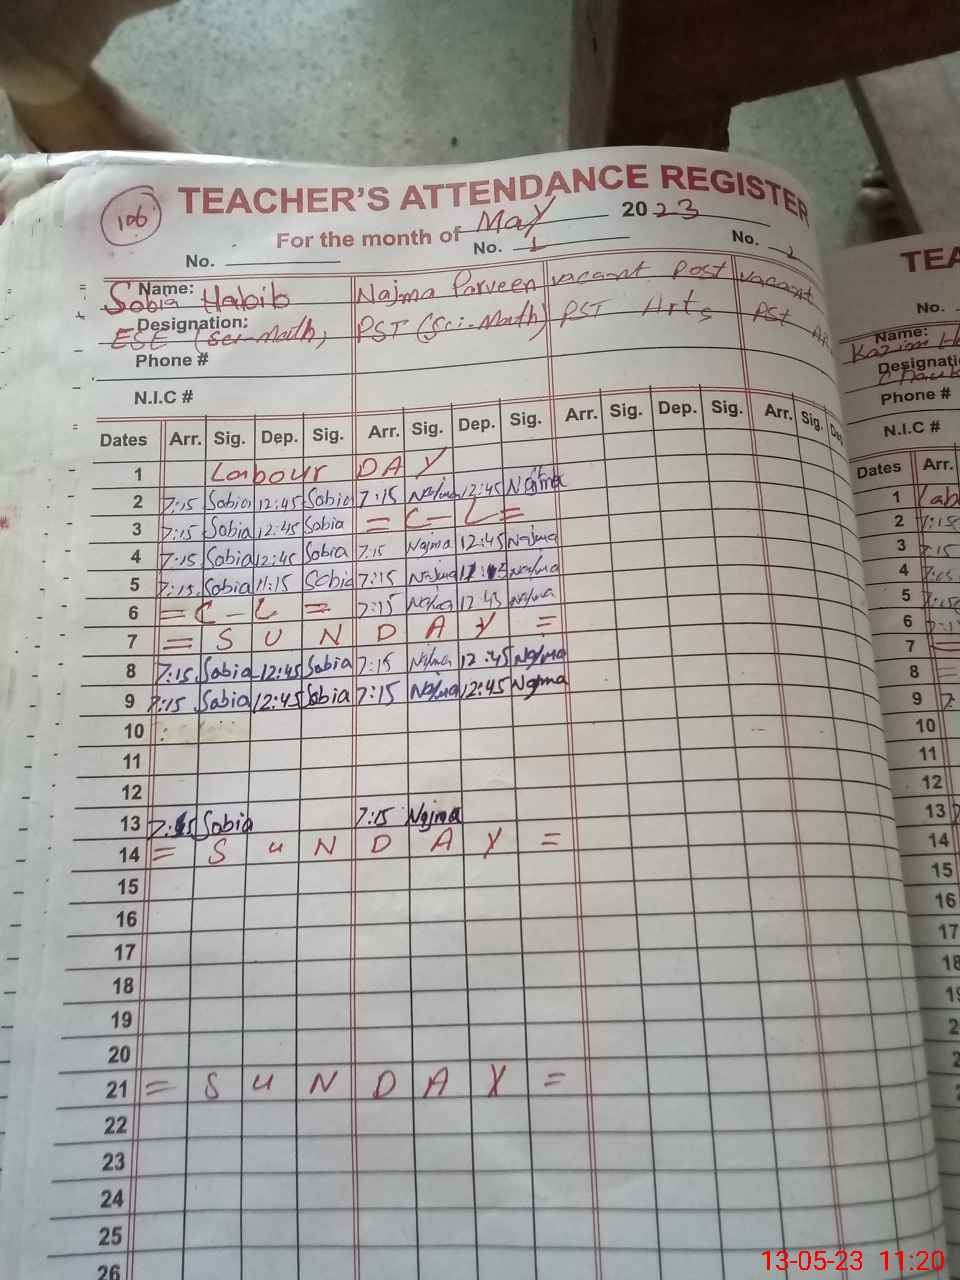 106
TEACHER'S ATTENDANCE REGISTER
For the month of May 2023
No. No. 1 No. 2
Name: Sobia Habib Najma Parveen vacant Post vacant
Designation: ESE (sci-math) PST (Sci-Math) PST Arts PST
Phone #
N.I.C #
Dates Arr. Sig. Dep. Sig. Arr. Sig. Dep. Sig. Arr. Sig. Dep. Sig. Arr. Sig. De
1 Labour DAY
2 7:15 Sobia 12:45 Sobia 7:15 Najma 12:45 Najma
3 7:15 Sobia 12:45 Sobia = C - L =
4 7:15 Sobia 12:45 Sobia 7:15 Najma 12:45 Najma
5 7:15 Sobia 11:15 Sobia 7:15 Najma Najma
6 = C - L = 7:15 Najma 12:45 Najma
7 = S U N D A Y =
8 7:15 Sobia 12:45 Sobia 7:15 Najma 12:45 Najma
9 7:15 Sobia 12:45 Sobia 7:15 Najma 12:45 Najma
10
11
12
13 7:15 Sobia 7:15 Najma
14 = S u N D A Y =
15
16
17
18
19
20
21 = S u N D A Y =
22
23
24
25
26
TEA
No.
Name:
Kazim H
Designati
Phone #
N.I.C #
Dates Arr.
1 Lab
2 7:15
3 7:15
4 7:15
5 7:15
6 7:1
7 =
8
9 7:
10
11
12
13 7
14
15
16
17
18
19
2
2
13-05-23 11:20